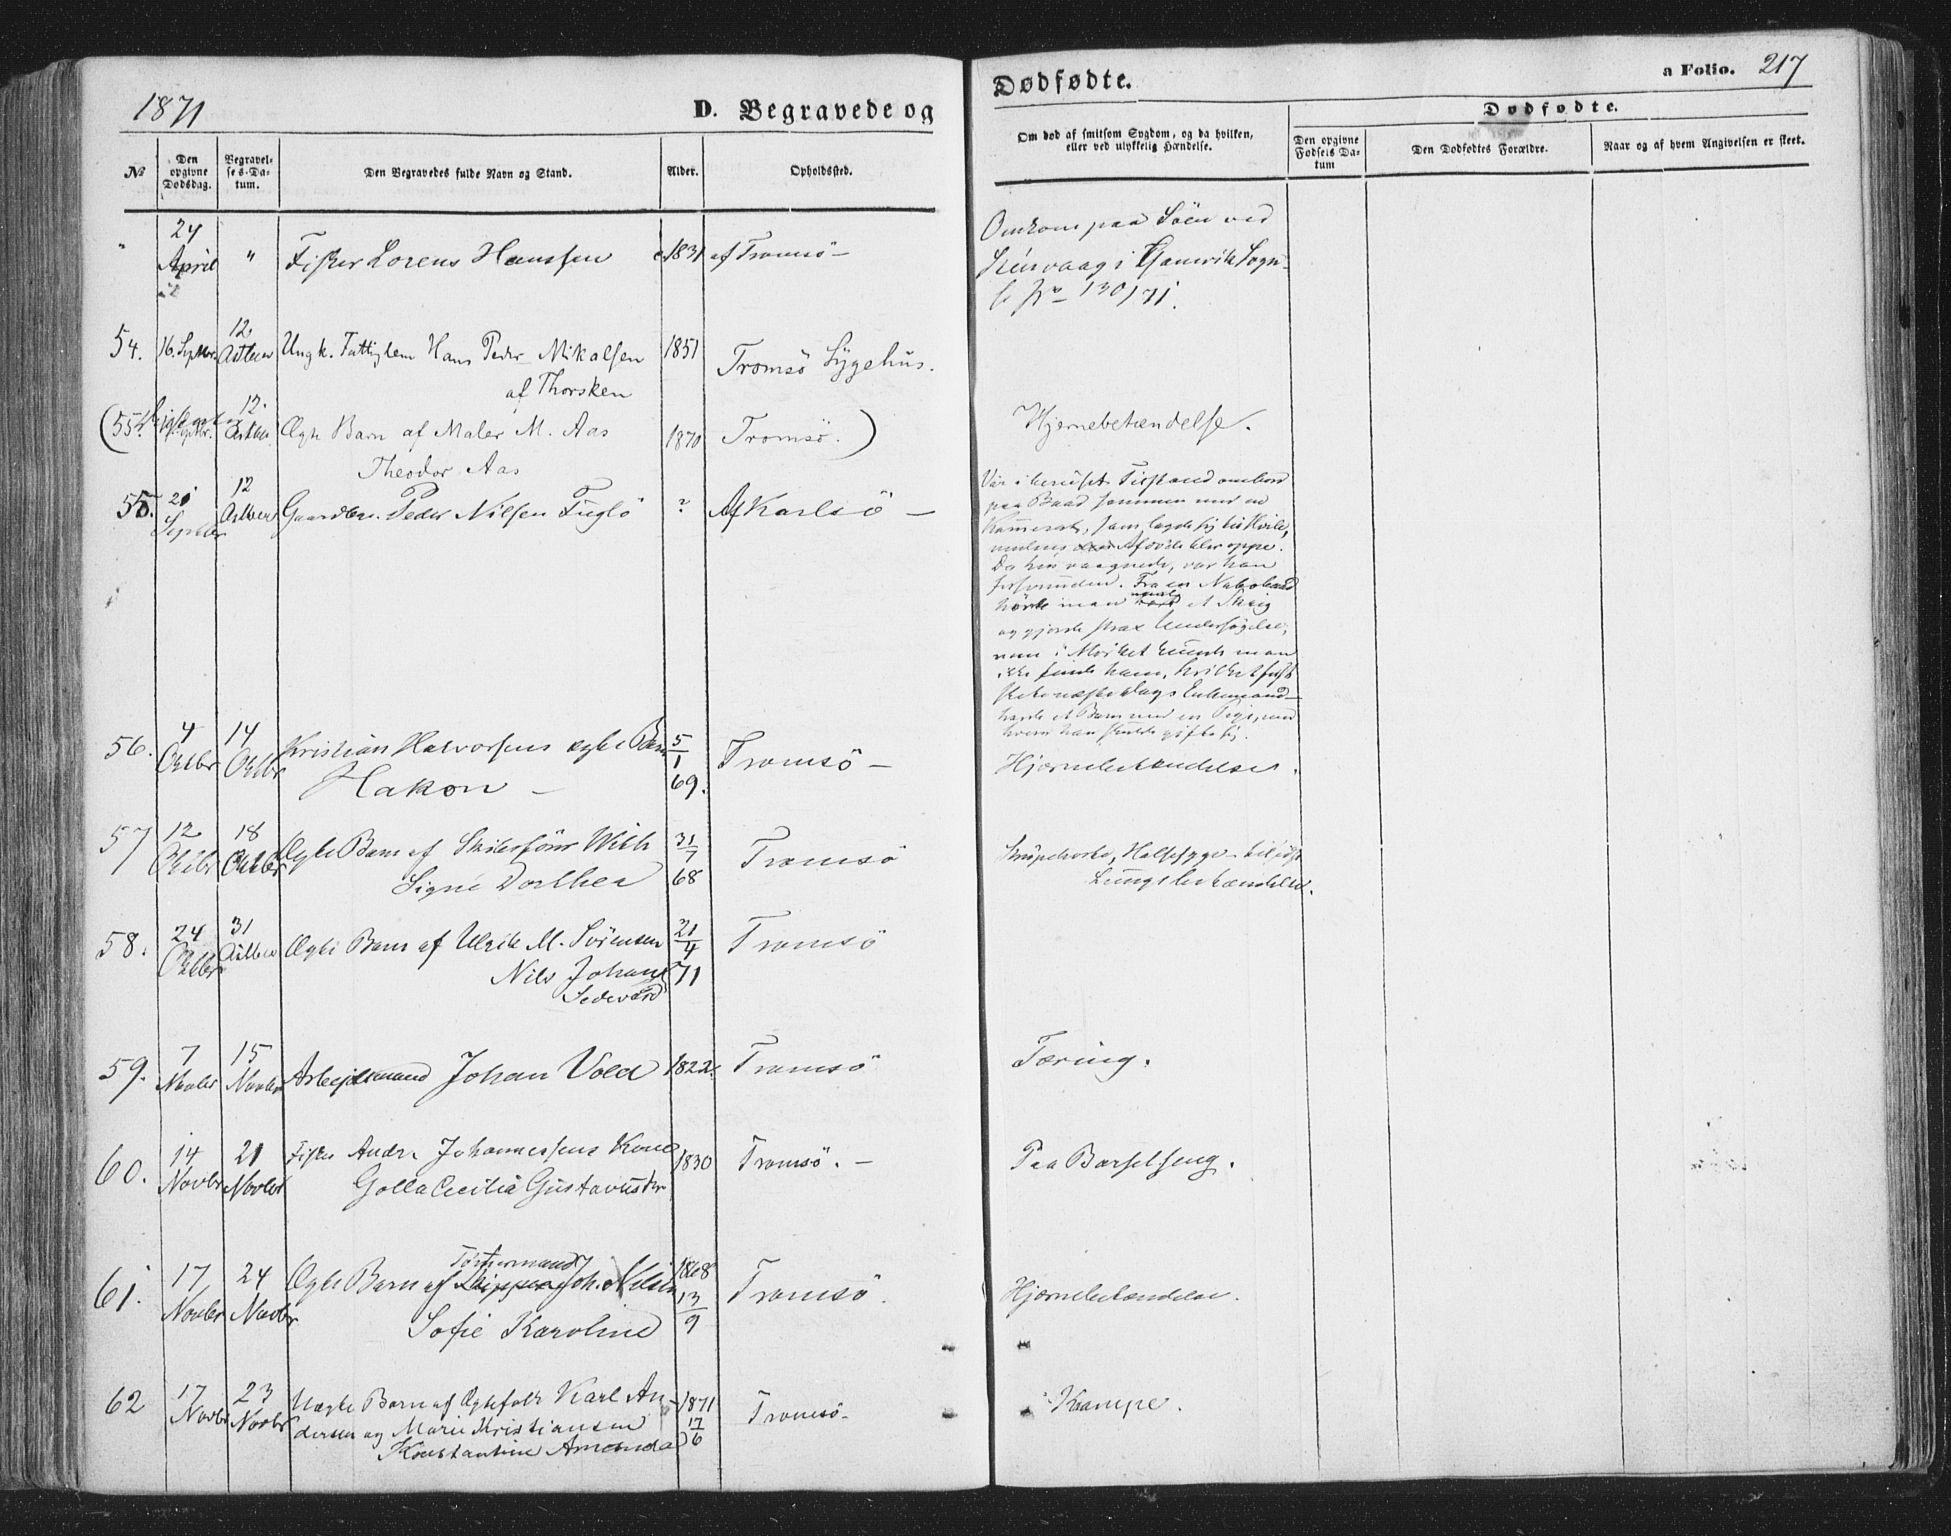 1871
D. Begravede og
Dødfødte.
a Folio. 217
Dødfødte.
№
Den opgivne Dødsdag.
Begravelses-Datum.
Den Begravedes fulde Navn og Stand.
Alder.
Opholdssted.
Om død af smitsom Sygdom, og da hvilken,
eller ved ulykkelig Hændelse.
Den opgivne Fødsels Datum
Den Dødfødtes Forældre.
Naar og af hvem Angivelsen er skeet.
" 24 April " Fisker Lorens Hanssen 1831 af Tromsö —
Omkom paa Söen ved
i Gamvik Sogn
130/71.
54. 16. Septbr. 12. Ungk. Fattiglem Hans Peder Mikalsen 1851 Tromsö Sygehus.
af Thorsken
(55. Septbr. 12. Ægte Barn af Maler M. Aas 1870 Tromsö.)
Theodor Aas
Hjernebetændelse.
55. 21 Septbr 12 Gaardbr. Peder Nilsen Fuglö ? Af Karlsö —
Var i beruset Tilstand ombord
paa Baad sammen med en
Kammerat, som lagde sig til Hvile,
medens Afdöde blev oppe.
Da hin vaagnede, var han
forsvunden. Fra en Nabobaad
hörte man et Skrig
og gjorde strax Undersögelse,
men i Mörket kunde man
ikke finde ham, hvilket först
skete næste Dags
havde et Barn med en Pige, med
hvem han skulde gifte sig.
56. 4 Octbr 14 Octbr Kristian Halvorsens ægte Barn 5/1 69. Tromsö —
Hakon —
Hjernebetændelse.
57 12 Octbr 18 Octbr Ægte Barn af Wilh 31/7 68 Tromsö
Signe Dorthea
Strubehoste, Halssyge
Lungebetændelse.
58. 24 Octbr 31 Ægte Barn af Ulrik M. Sörensen 21/4 71 Tromsö
Nils Johan
Sedevard
59. 7 Novbr 15 Novbr Arbejdsmand Johan Vold 1822. Tromsö
Tæring.
60. 14 Novbr 21 Novbr Fisker Andr. Johannessens Kone 1830 Tromsö. —
Golla Cecilia Gustavusdtr
Paa Barselseng.
61. 17 Novbr 24 Novbr Ægte Barn af Skipper Joh. Nilsen 1868 13/9 Tromsö.
Sofie Karoline
Hjernebetændelse.
62 17 Novbr 23 Novbr Uægte Barn af Ægtefolk Karl An- 1871 17/6 Tromsö.
dersen og Marie Kristiansen
Konstantine Amanda
Krampe.